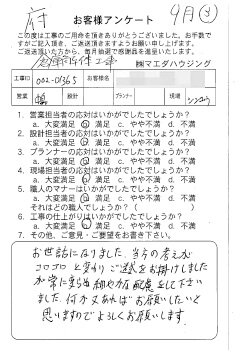 府
9月③
お客様アンケート
この度は工事のご用命を頂きありがとうございました。お手数で
すがご記入頂き、ご返送頂きますようお願い申し上げます。
ご返送頂いた方から、毎月抽選で感謝品を進呈いたします。
㈱マエダハウジング
工事ID 002-01365 お客様名
営業 設計 プランナー 現場
1. 営業担当者の応対はいかがでしたでしょうか?
a. 大変満足 b. 満足 c. やや不満 d. 不満
2. 設計担当者の応対はいかがでしたでしょうか?
a. 大変満足 b. 満足 c. やや不満 d. 不満
3. プランナーの応対はいかがでしたでしょうか?
a. 大変満足 b. 満足 c. やや不満 d. 不満
4. 現場担当者の応対はいかがでしたでしょうか?
a. 大変満足 b. 満足 c. やや不満 d. 不満
5. 職人のマナーはいかがでしたでしょうか?
a. 大変満足 b. 満足 c. やや不満 d. 不満
それはどの職人でしょうか?( )
6. 工事の仕上がりはいかがでしたでしょうか?
a. 大変満足 b. 満足 c. やや不満 d. 不満
7. その他、ご意見・ご要望をお書き下さい。
お世話になりました。当方の考えが
コロコロと変わりご迷惑をお掛けしました
が常に
ました。何か又あればお願いしたいと
思いますのでよろしくお願いします。